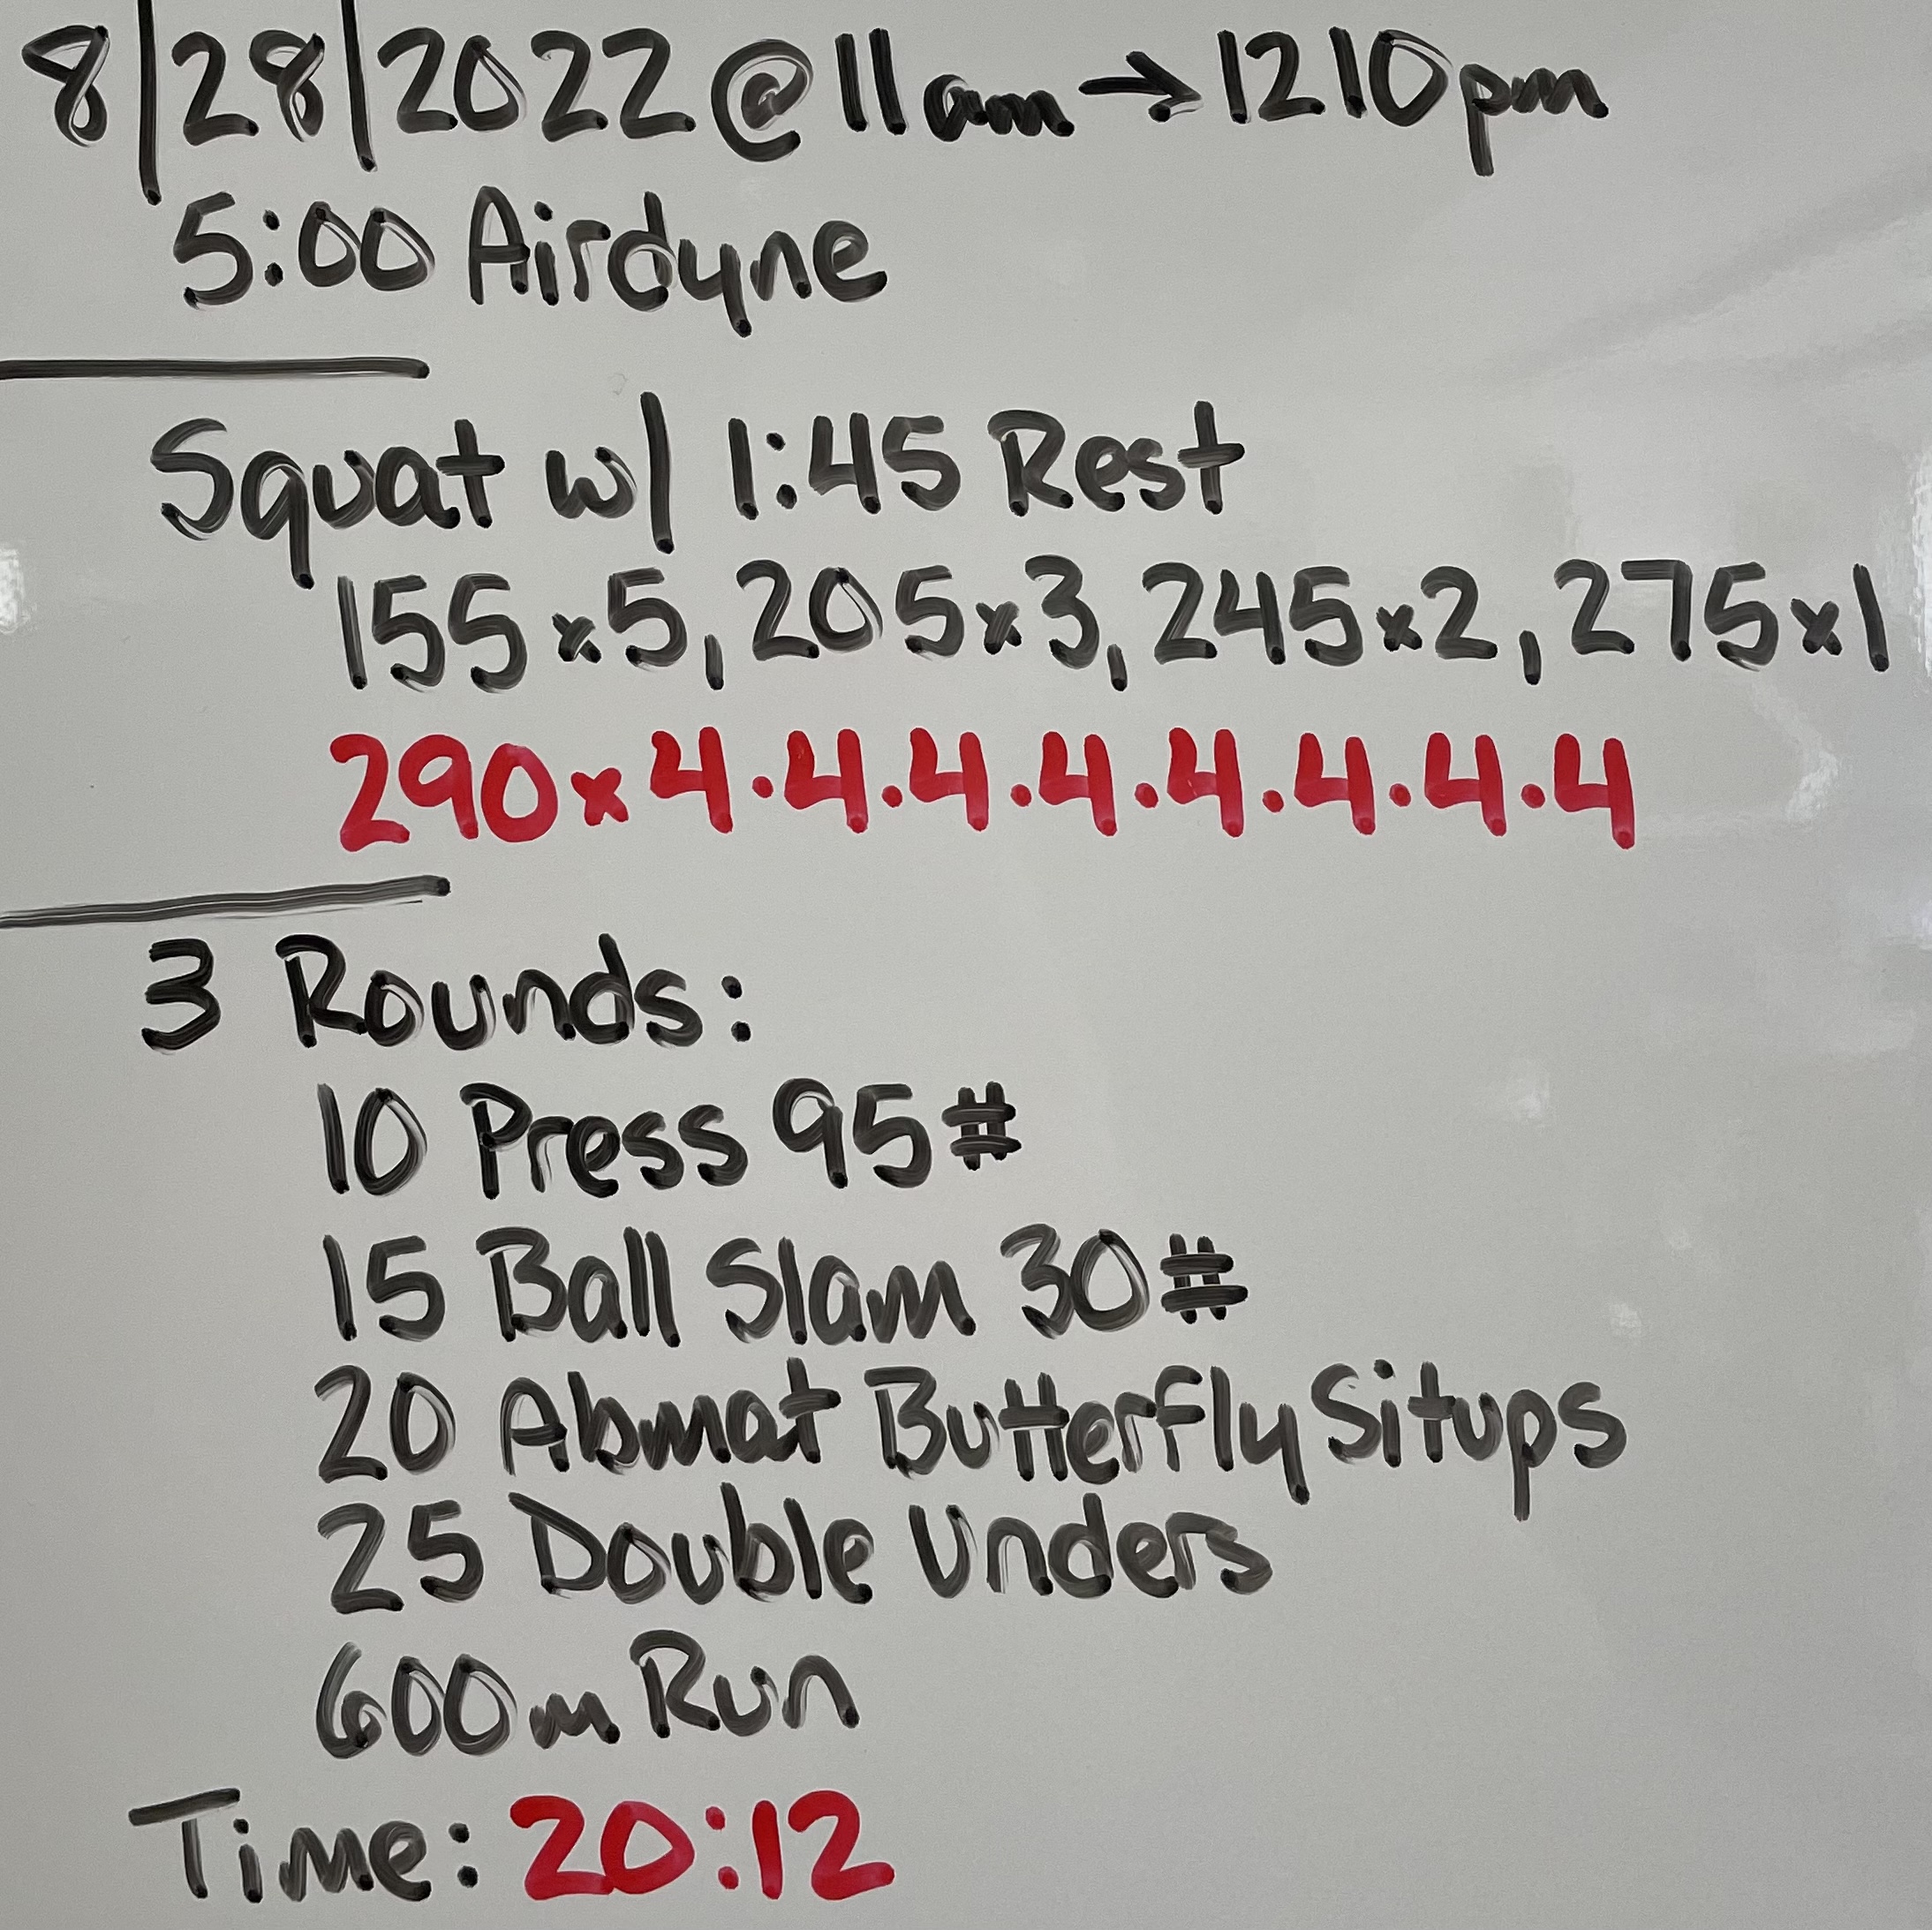 8/28/2022 @ 11am → 1210pm
5:00 Airdyne
Squat w/ 1:45 Rest
155x5, 205x3, 245x2, 275x1
290x4.4.4.4.4.4.4.4
3 Rounds:
10 Press 95#
15 Ball Slam 30#
20 Abmat Butterfly Situps
25 Double Unders
600m Run
Time: 20:12